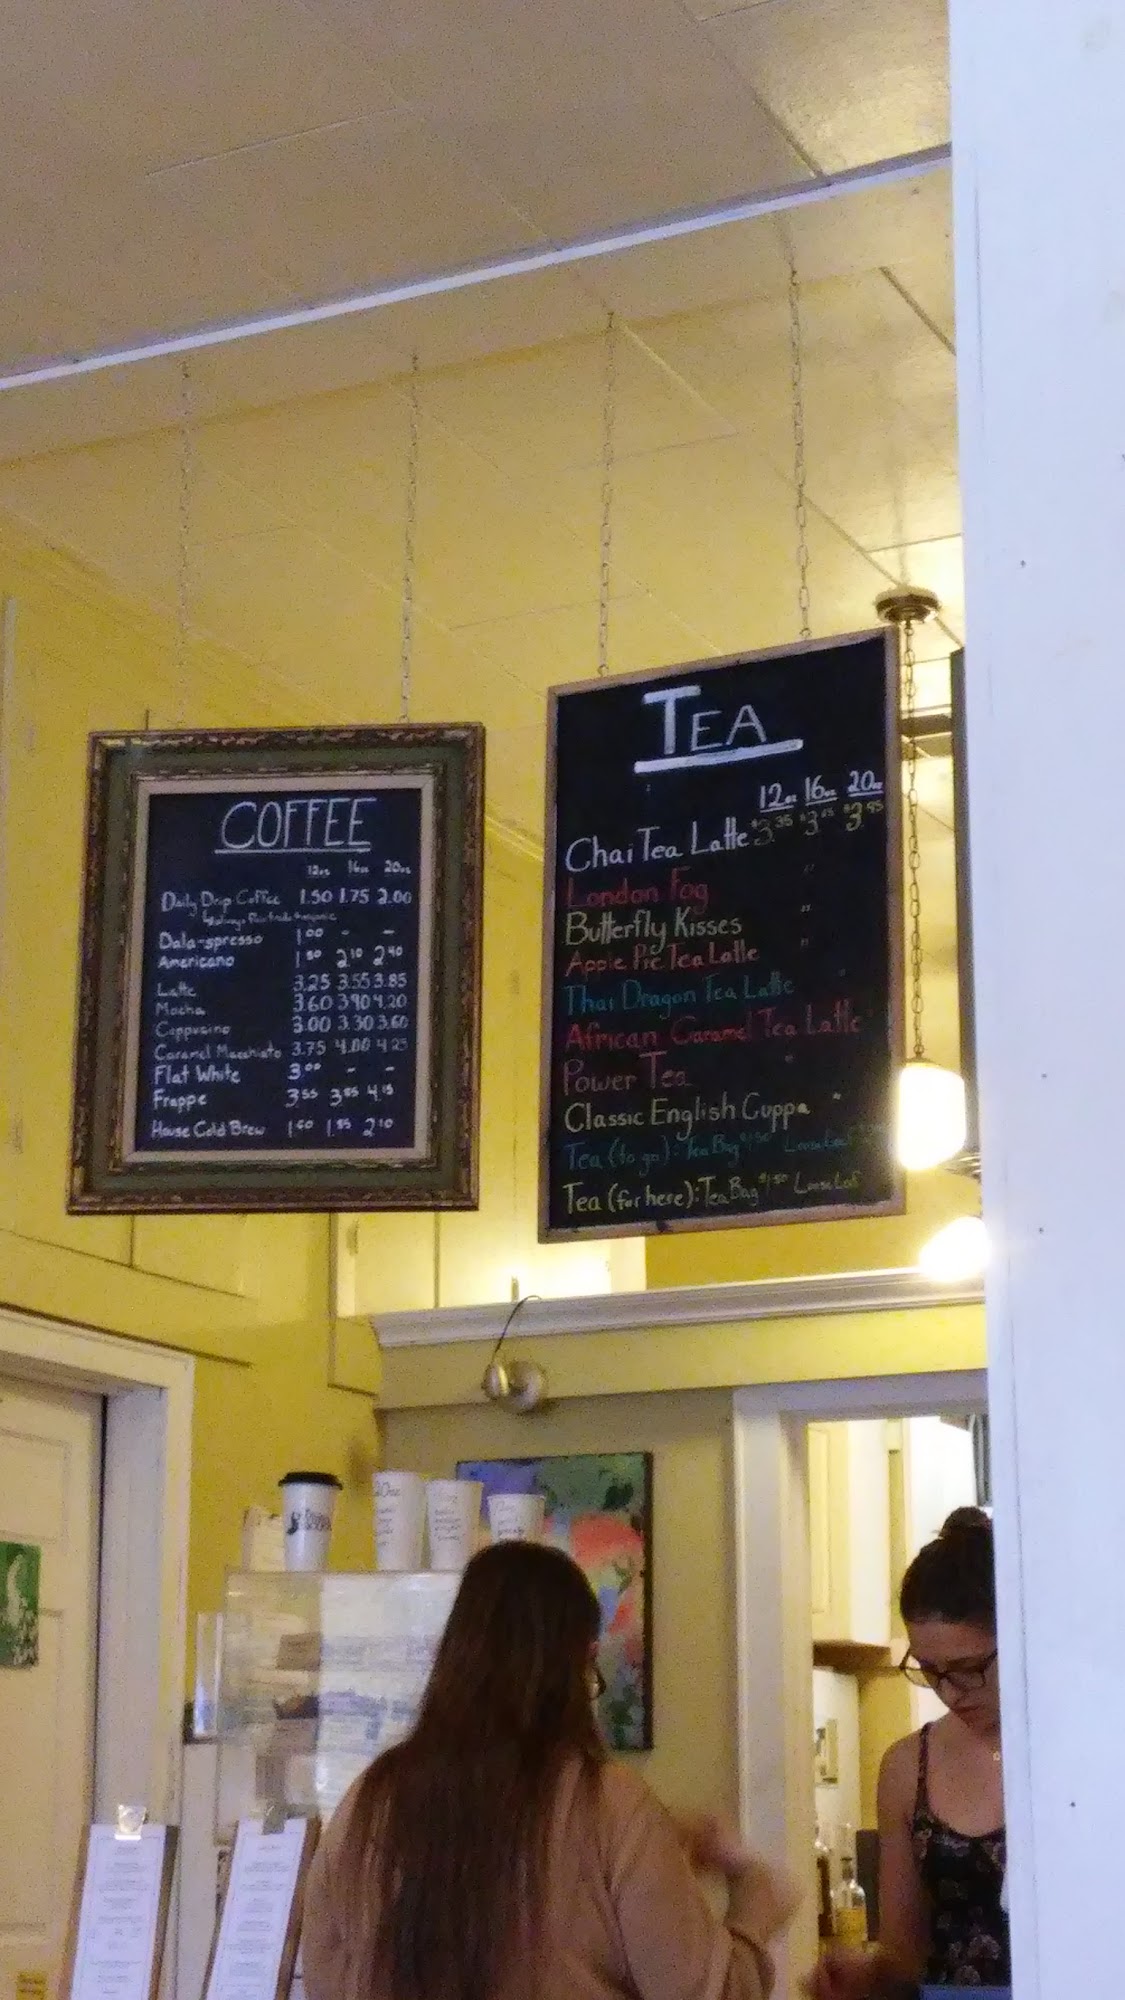 COFFEE
12oz 16oz 20oz
Daily Drip Coffee 1.50 1.75 2.00
Dala-spresso 1.00 - -
Americano 1.50 2.10 2.40
Latte 3.25 3.55 3.85
Mocha 3.60 3.90 4.20
Cappucino 3.00 3.30 3.60
Caramel Macchiato 3.75 4.00 4.25
Flat White 3.00 - -
Frappe 3.55 3.85 4.15
House Cold Brew 1.60 1.85 2.10
TEA
12oz 16oz 20oz
Chai Tea Latte $3.35 $3.65 $3.95
London Fog "
Butterfly Kisses "
Apple Pie Tea Latte "
Thai Dragon Tea Latte "
African Caramel Tea Latte "
Power Tea "
Classic English Cuppa "
Tea (to go): Tea Bag $1.50 Loose Leaf
Tea (for here): Tea Bag $1.50 Loose Leaf
20oz